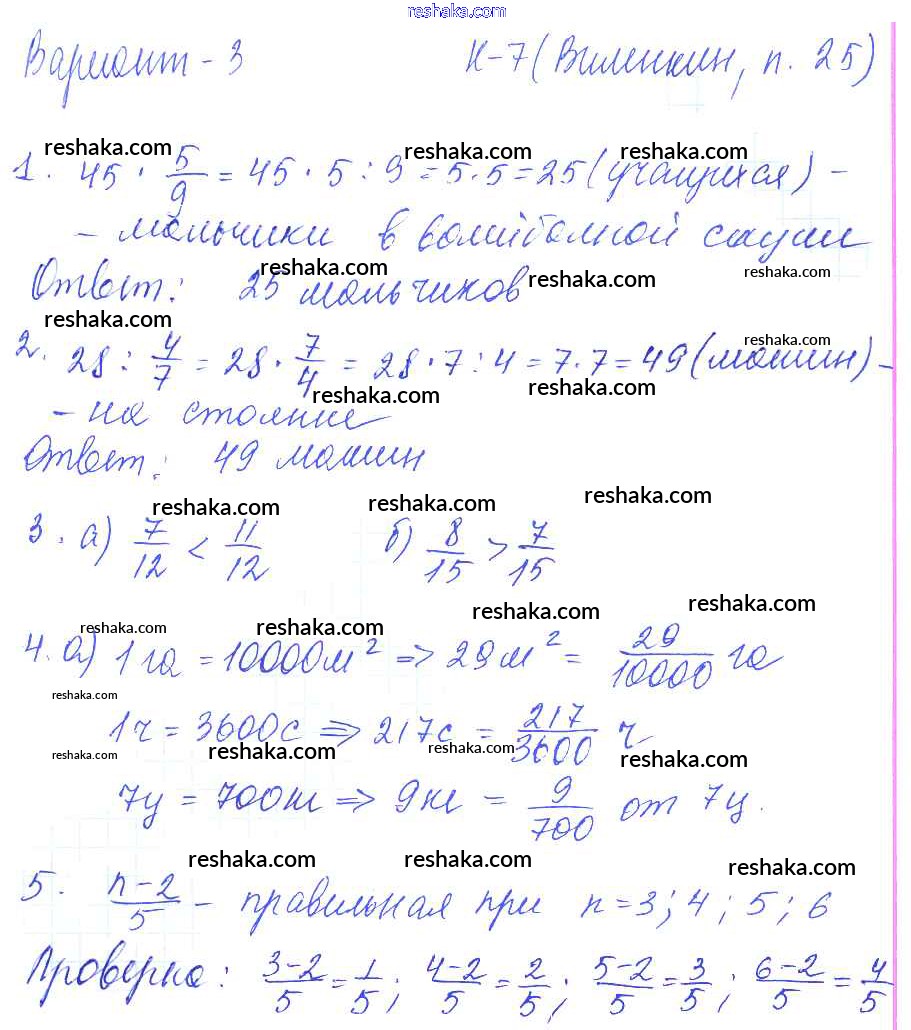 reshaka.com
Вариант - 3 К-7 (Виленкин, п. 25)
reshaka.com reshaka.com reshaka.com
1. 45 · 5/9 = 45 · 5 : 9 = 5 · 5 = 25 (учащихся) -
- мальчики в волейбольной секции
reshaka.com reshaka.com reshaka.com
Ответ: 25 мальчиков
reshaka.com reshaka.com
2. 28 : 4/7 = 28 · 7/4 = 28 · 7 : 4 = 7 · 7 = 49 (машин) -
reshaka.com reshaka.com
- на стоянке
Ответ: 49 машин
reshaka.com reshaka.com reshaka.com
3. а) 7/12 < 11/12 б) 8/15 > 7/15
reshaka.com reshaka.com reshaka.com reshaka.com
4. а) 1 га = 10000 м² => 29 м² = 29/10000 га
reshaka.com
1 ч = 3600 с => 217 с = 217/3600 ч
reshaka.com reshaka.com reshaka.com reshaka.com
7 ц = 700 кг => 9 кг = 9/700 от 7 ц.
reshaka.com reshaka.com reshaka.com
5. n-2/5 - правильная при n = 3; 4; 5; 6
Проверка: 3-2/5 = 1/5; 4-2/5 = 2/5; 5-2/5 = 3/5; 6-2/5 = 4/5